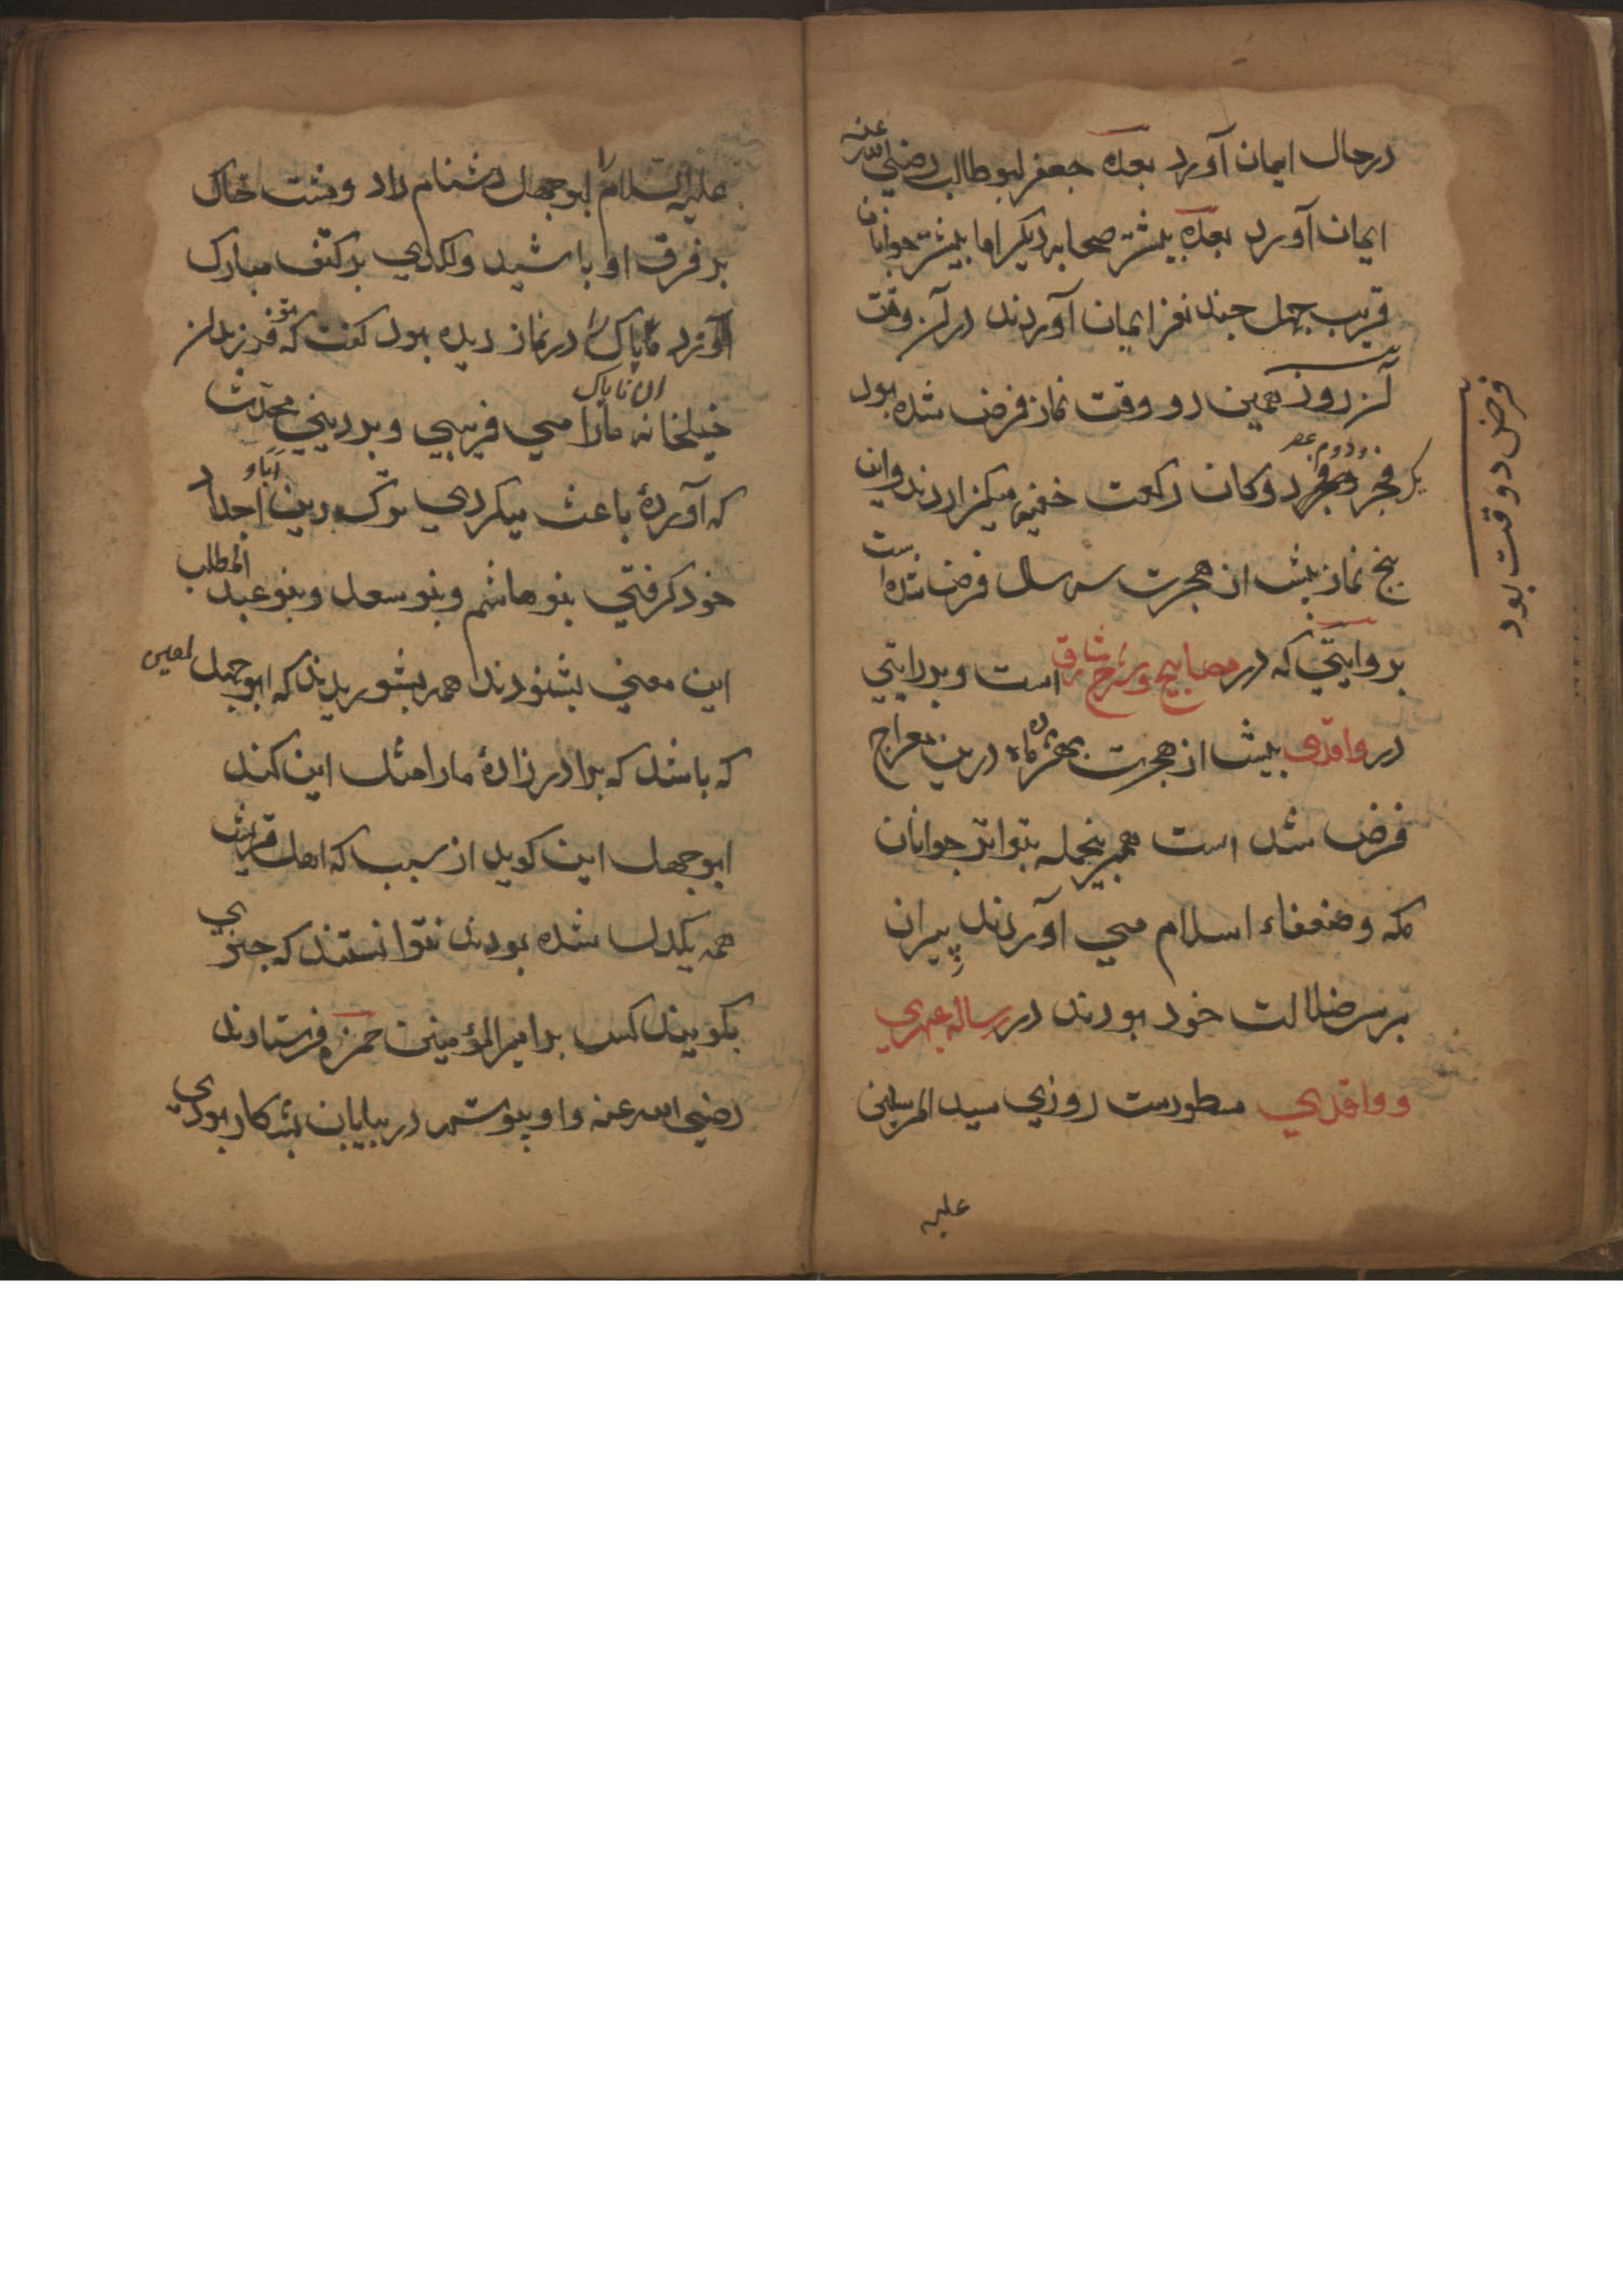 درحال ایمان آورد بعده جعفر ابوطالب رضی الله عنه
ایمان آورد بعده بیشتر صحابه دیکر اما بیشتر جوانان
قریب چهل چند نفر ایمان آوردند در آن وقت
آن روز همین دو وقت نماز فرض شده بود
یک فجر و دوم عصر دوکان رکعت خفیه میکزاردند واین
پنج نماز پیش از هجرت سه سال فرض شده است
بروایتي که در مصابیح وشرح مشارق است وبروایتي
در واقدی پیش از هجرت بهژده ماه درین معراج
فرض شد است همبرینجمله بتواتر جوانان
مکه وضعفاء اسلام مي آوردند پیران
برسر ضلالت خود بودند در رساله عبهري
و واقدي مسطورست روزي سید المرسلین
علیه
فرض دو وقت بود
علیه السلام را ابوجهل دشنام داد ومشت خاک
بر فرق او پاشید ولکدي بر کتف مبارک
او زد ناپاک در نماز دیده بود کفت که تو فرزندان
خیلخانه مارا آن ناپاک مي فریبي وبر دیني محدث
که آوردهٔ باعث میکردي ترک دین آبا و اجداد
خود کرفتي بنو هاشم وبنو سعد وبنو عبد المطلب
این معني بشنودند همه بشوریدند که ابوجهل لعین
که باشد که برادرزادهٔ مارا مثل این کند
ابوجهل این کوید از سبب که اهل قریش
همه یکدل شده بودند نتوانستند که چیزي
بکویند کس بر امیر المؤمنین حمزه فرستادند
رضی الله عنه واو پیوسته در بیابان بشکار بودي